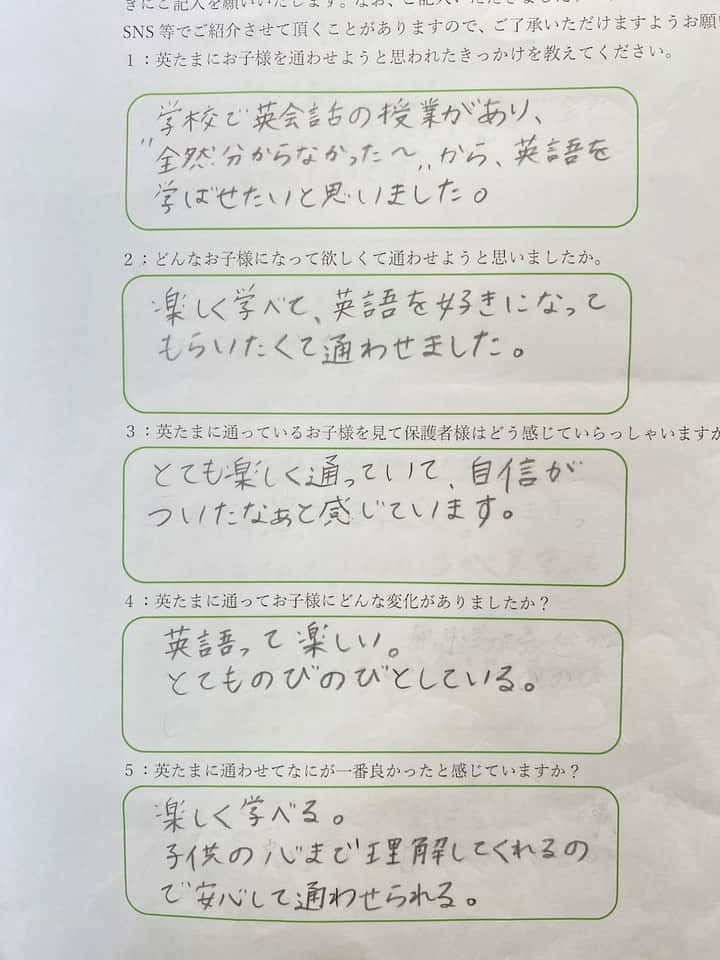 きにご記入を願いいたします。なお、ご記入いただきました
SNS 等でご紹介させて頂くことがありますので、ご了承いただけますようお願い
１：英たまにお子様を通わせようと思われたきっかけを教えてください。
学校で英会話の授業があり、
"全然分からなかった〜"から、英語を
学ばせたいと思いました。
２：どんなお子様になって欲しくて通わせようと思いましたか。
楽しく学べて、英語を好きになって
もらいたくて通わせました。
３：英たまに通っているお子様を見て保護者様はどう感じていらっしゃいますか
とても楽しく通っていて、自信が
ついたなぁと感じています。
４：英たまに通ってお子様にどんな変化がありましたか？
英語って楽しい。
とてものびのびとしている。
５：英たまに通わせてなにが一番良かったと感じていますか？
楽しく学べる。
子供の心まで理解してくれるの
で安心して通わせられる。